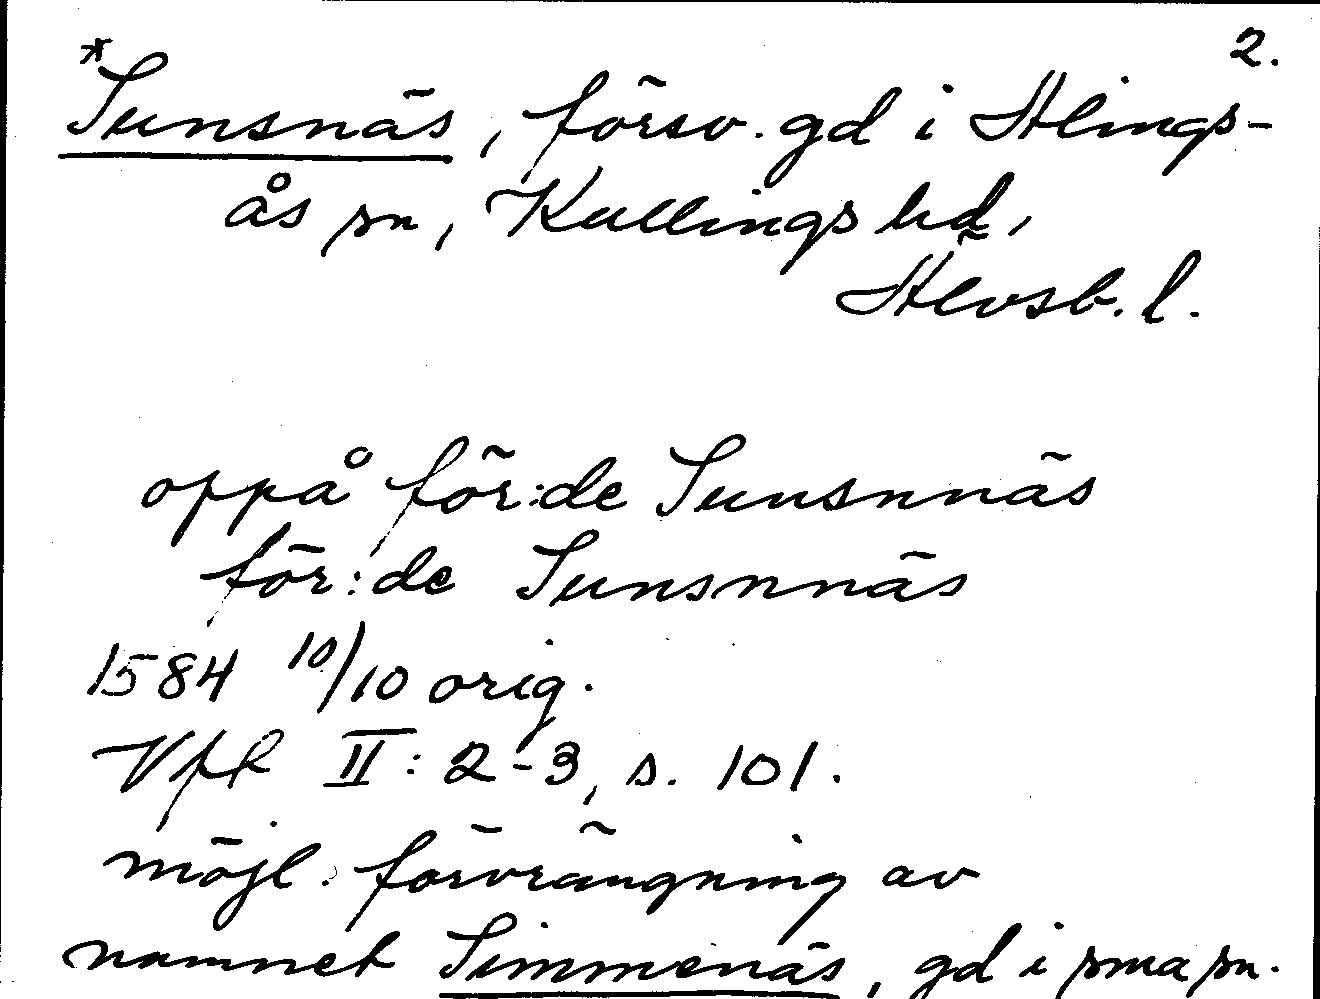 2.
*Sunsnäs, försv. gd i Alings-
ås sn, Kullings hd,
Älvsb. l.
oppå för:de Sunsnnäs
för:de Sunsnnäs
1584 10/10 orig.
Vfl II: 2-3, s. 101.
möjl. förvrängning av
namnet Simmenäs, gd i sma sn.